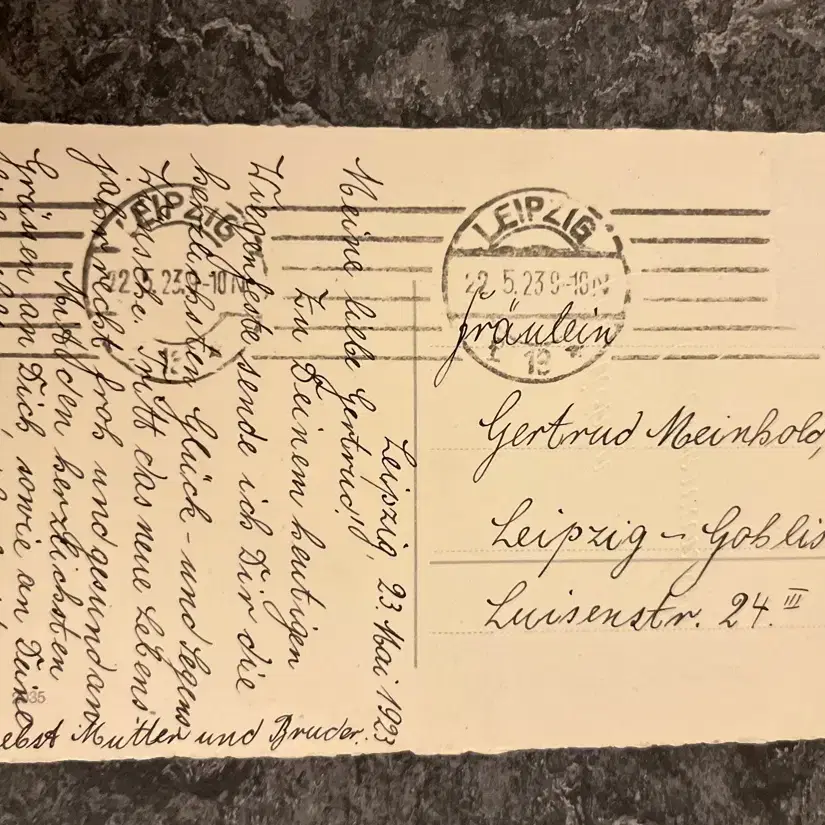 Leipzig, 23. Mai 1923
Meine liebe Gertrud!
Zu Deinem heutigen
Wiegenfeste sende ich Dir die
herzlichsten Glück- und Segens
Wünsche. Tritt das neue Lebens
jahr recht froh und gesund an
Mit den herzlichsten
Grüssen an Dich, sowie an Deine
nebst Mutter und Bruder.
LEIPZIG
22.5.23 9-10 N
19
LEIPZIG
22.5.23 9-10 N
19
Fräulein
Gertrud Meinhold,
Leipzig - Gohlis
Luisenstr. 24. III